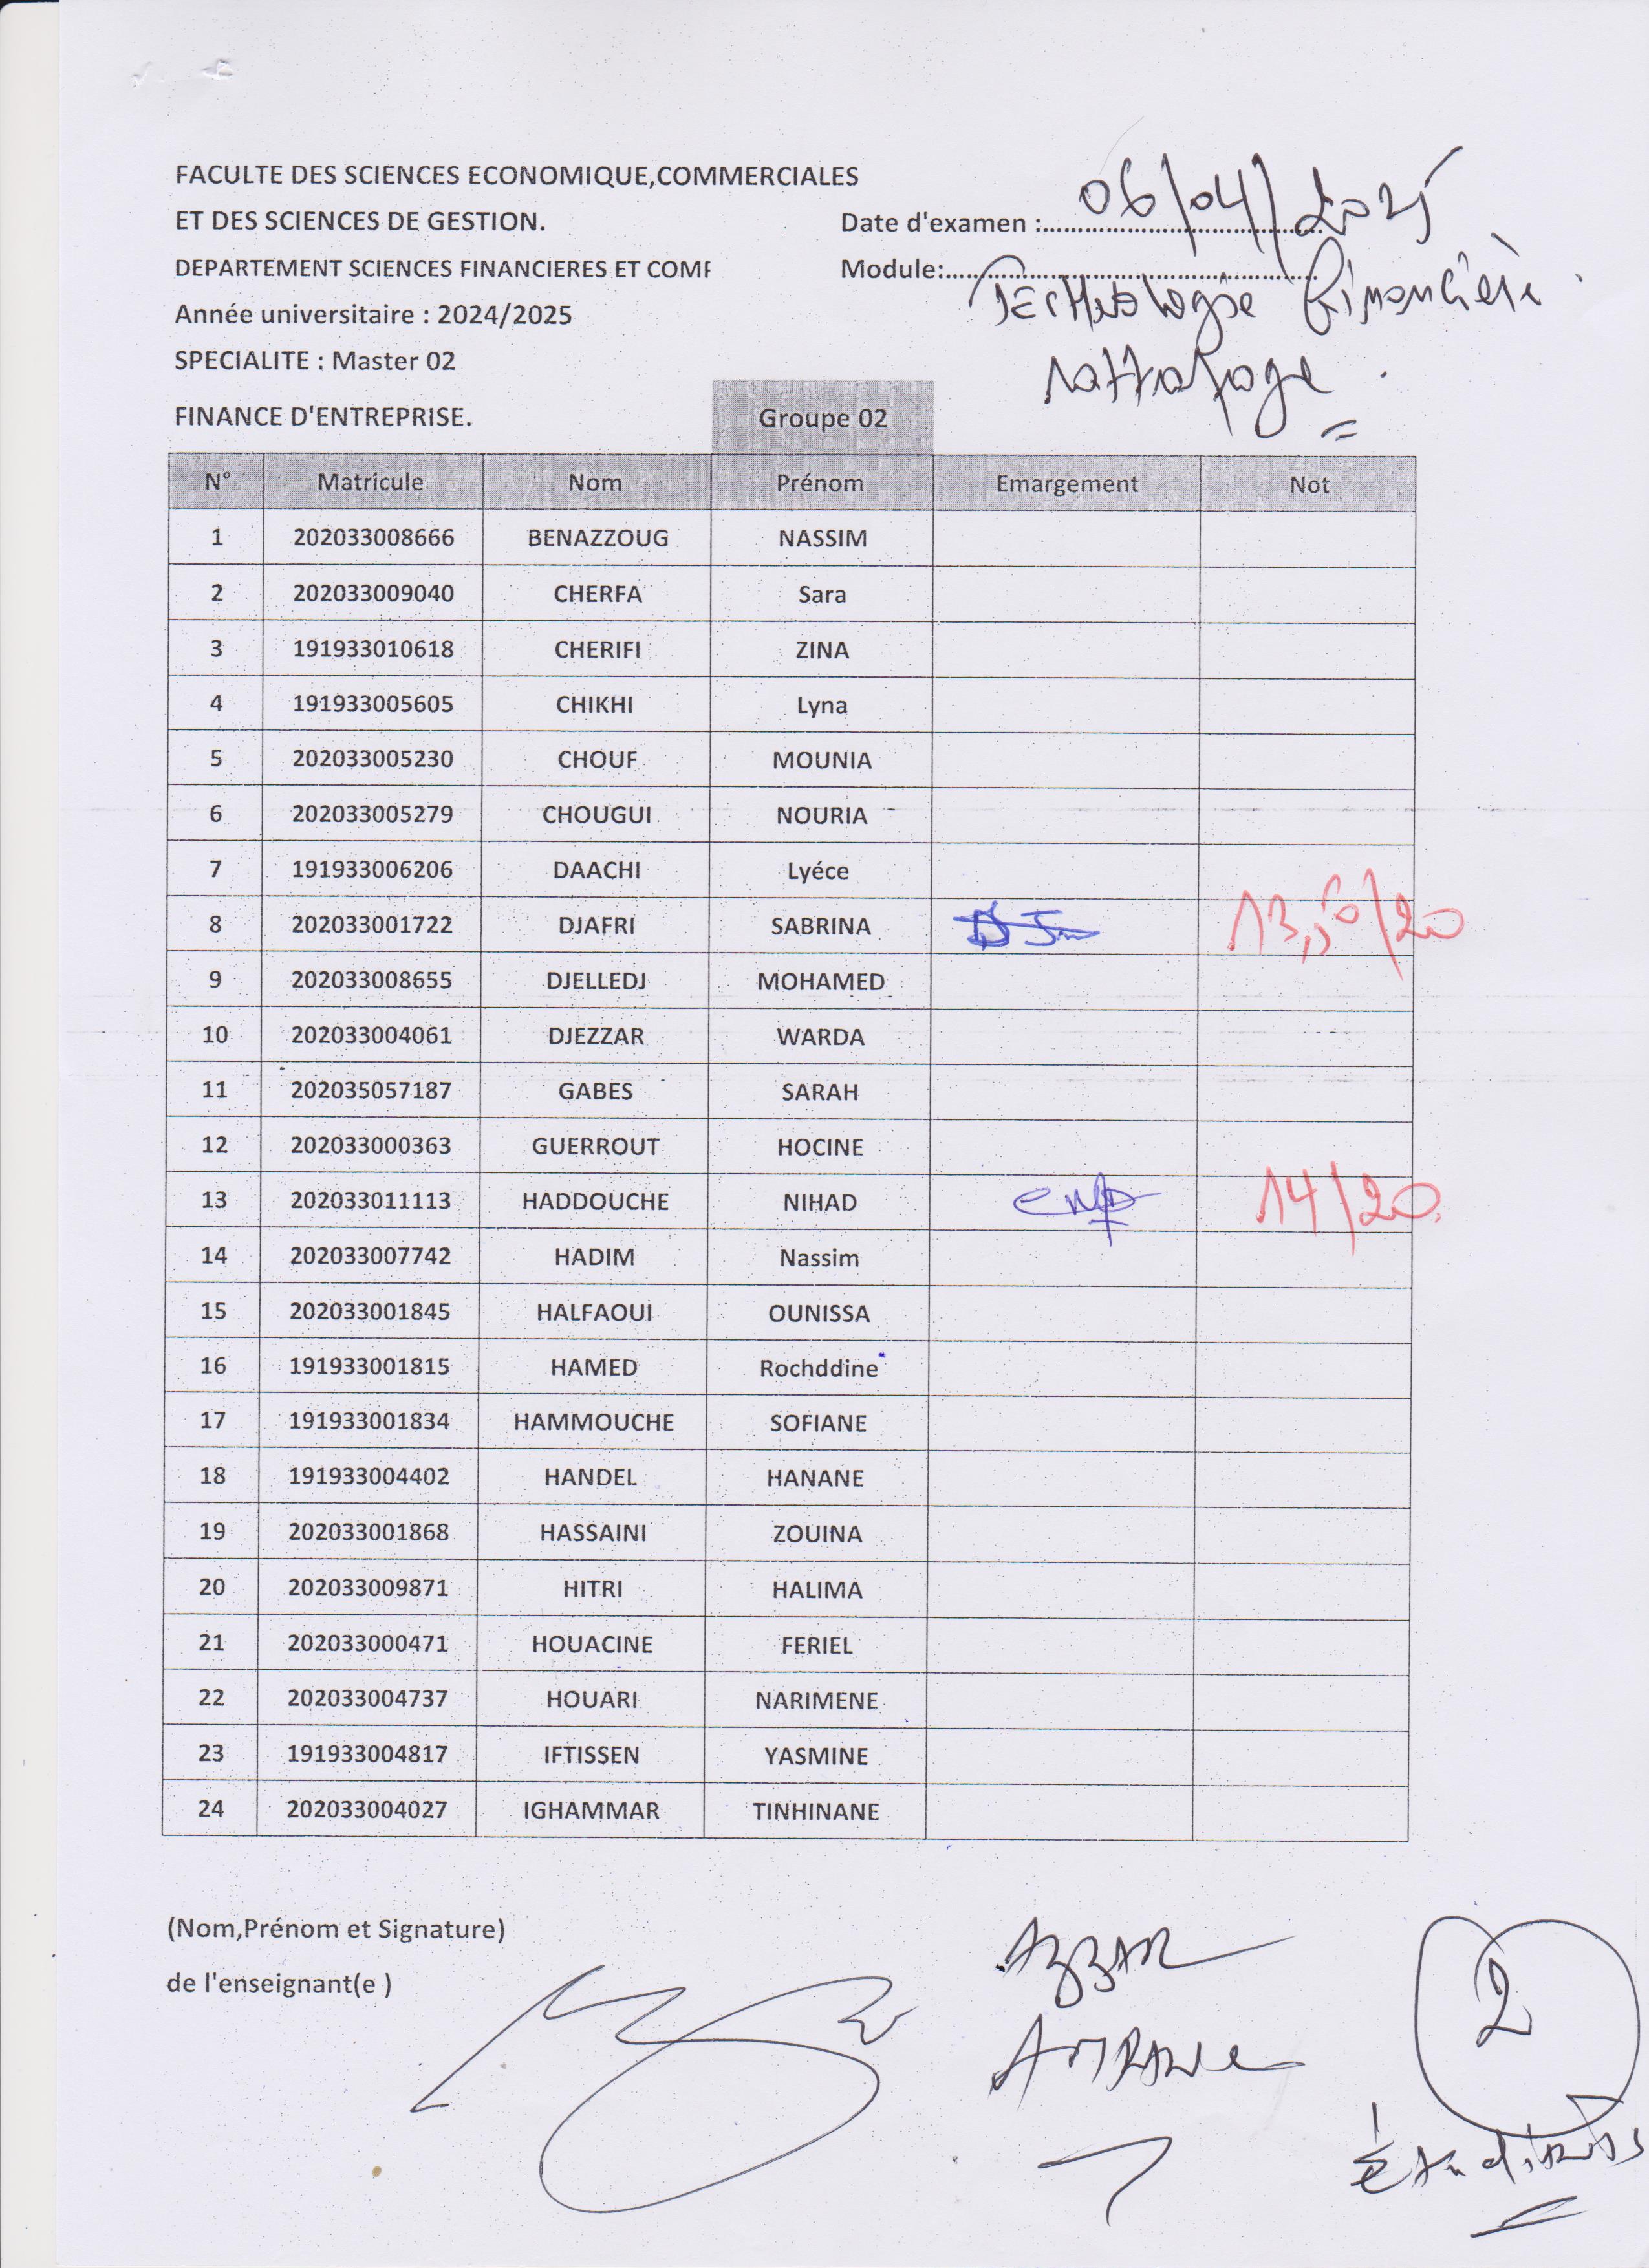 FACULTE DES SCIENCES ECONOMIQUE,COMMERCIALES
ET DES SCIENCES DE GESTION.
Date d'examen :.......... 06/04/2025
DEPARTEMENT SCIENCES FINANCIERES ET COMP
Module:.......... Technologie financière
Année universitaire : 2024/2025
SPECIALITE : Master 02
rattrapage.
FINANCE D'ENTREPRISE.
Groupe 02
N° Matricule Nom Prénom Emargement Not
1 202033008666 BENAZZOUG NASSIM
2 202033009040 CHERFA Sara
3 191933010618 CHERIFI ZINA
4 191933005605 CHIKHI Lyna
5 202033005230 CHOUF MOUNIA
6 202033005279 CHOUGUI NOURIA
7 191933006206 DAACHI Lyéce
8 202033001722 DJAFRI SABRINA 13,50/20
9 202033008655 DJELLEDJ MOHAMED
10 202033004061 DJEZZAR WARDA
11 202035057187 GABES SARAH
12 202033000363 GUERROUT HOCINE
13 202033011113 HADDOUCHE NIHAD 14/20
14 202033007742 HADIM Nassim
15 202033001845 HALFAOUI OUNISSA
16 191933001815 HAMED Rochddine
17 191933001834 HAMMOUCHE SOFIANE
18 191933004402 HANDEL HANANE
19 202033001868 HASSAINI ZOUINA
20 202033009871 HITRI HALIMA
21 202033000471 HOUACINE FERIEL
22 202033004737 HOUARI NARIMENE
23 191933004817 IFTISSEN YASMINE
24 202033004027 IGHAMMAR TINHINANE
(Nom,Prénom et Signature)
de l'enseignant(e )
AZZAR
AMRANE
2
étudiants